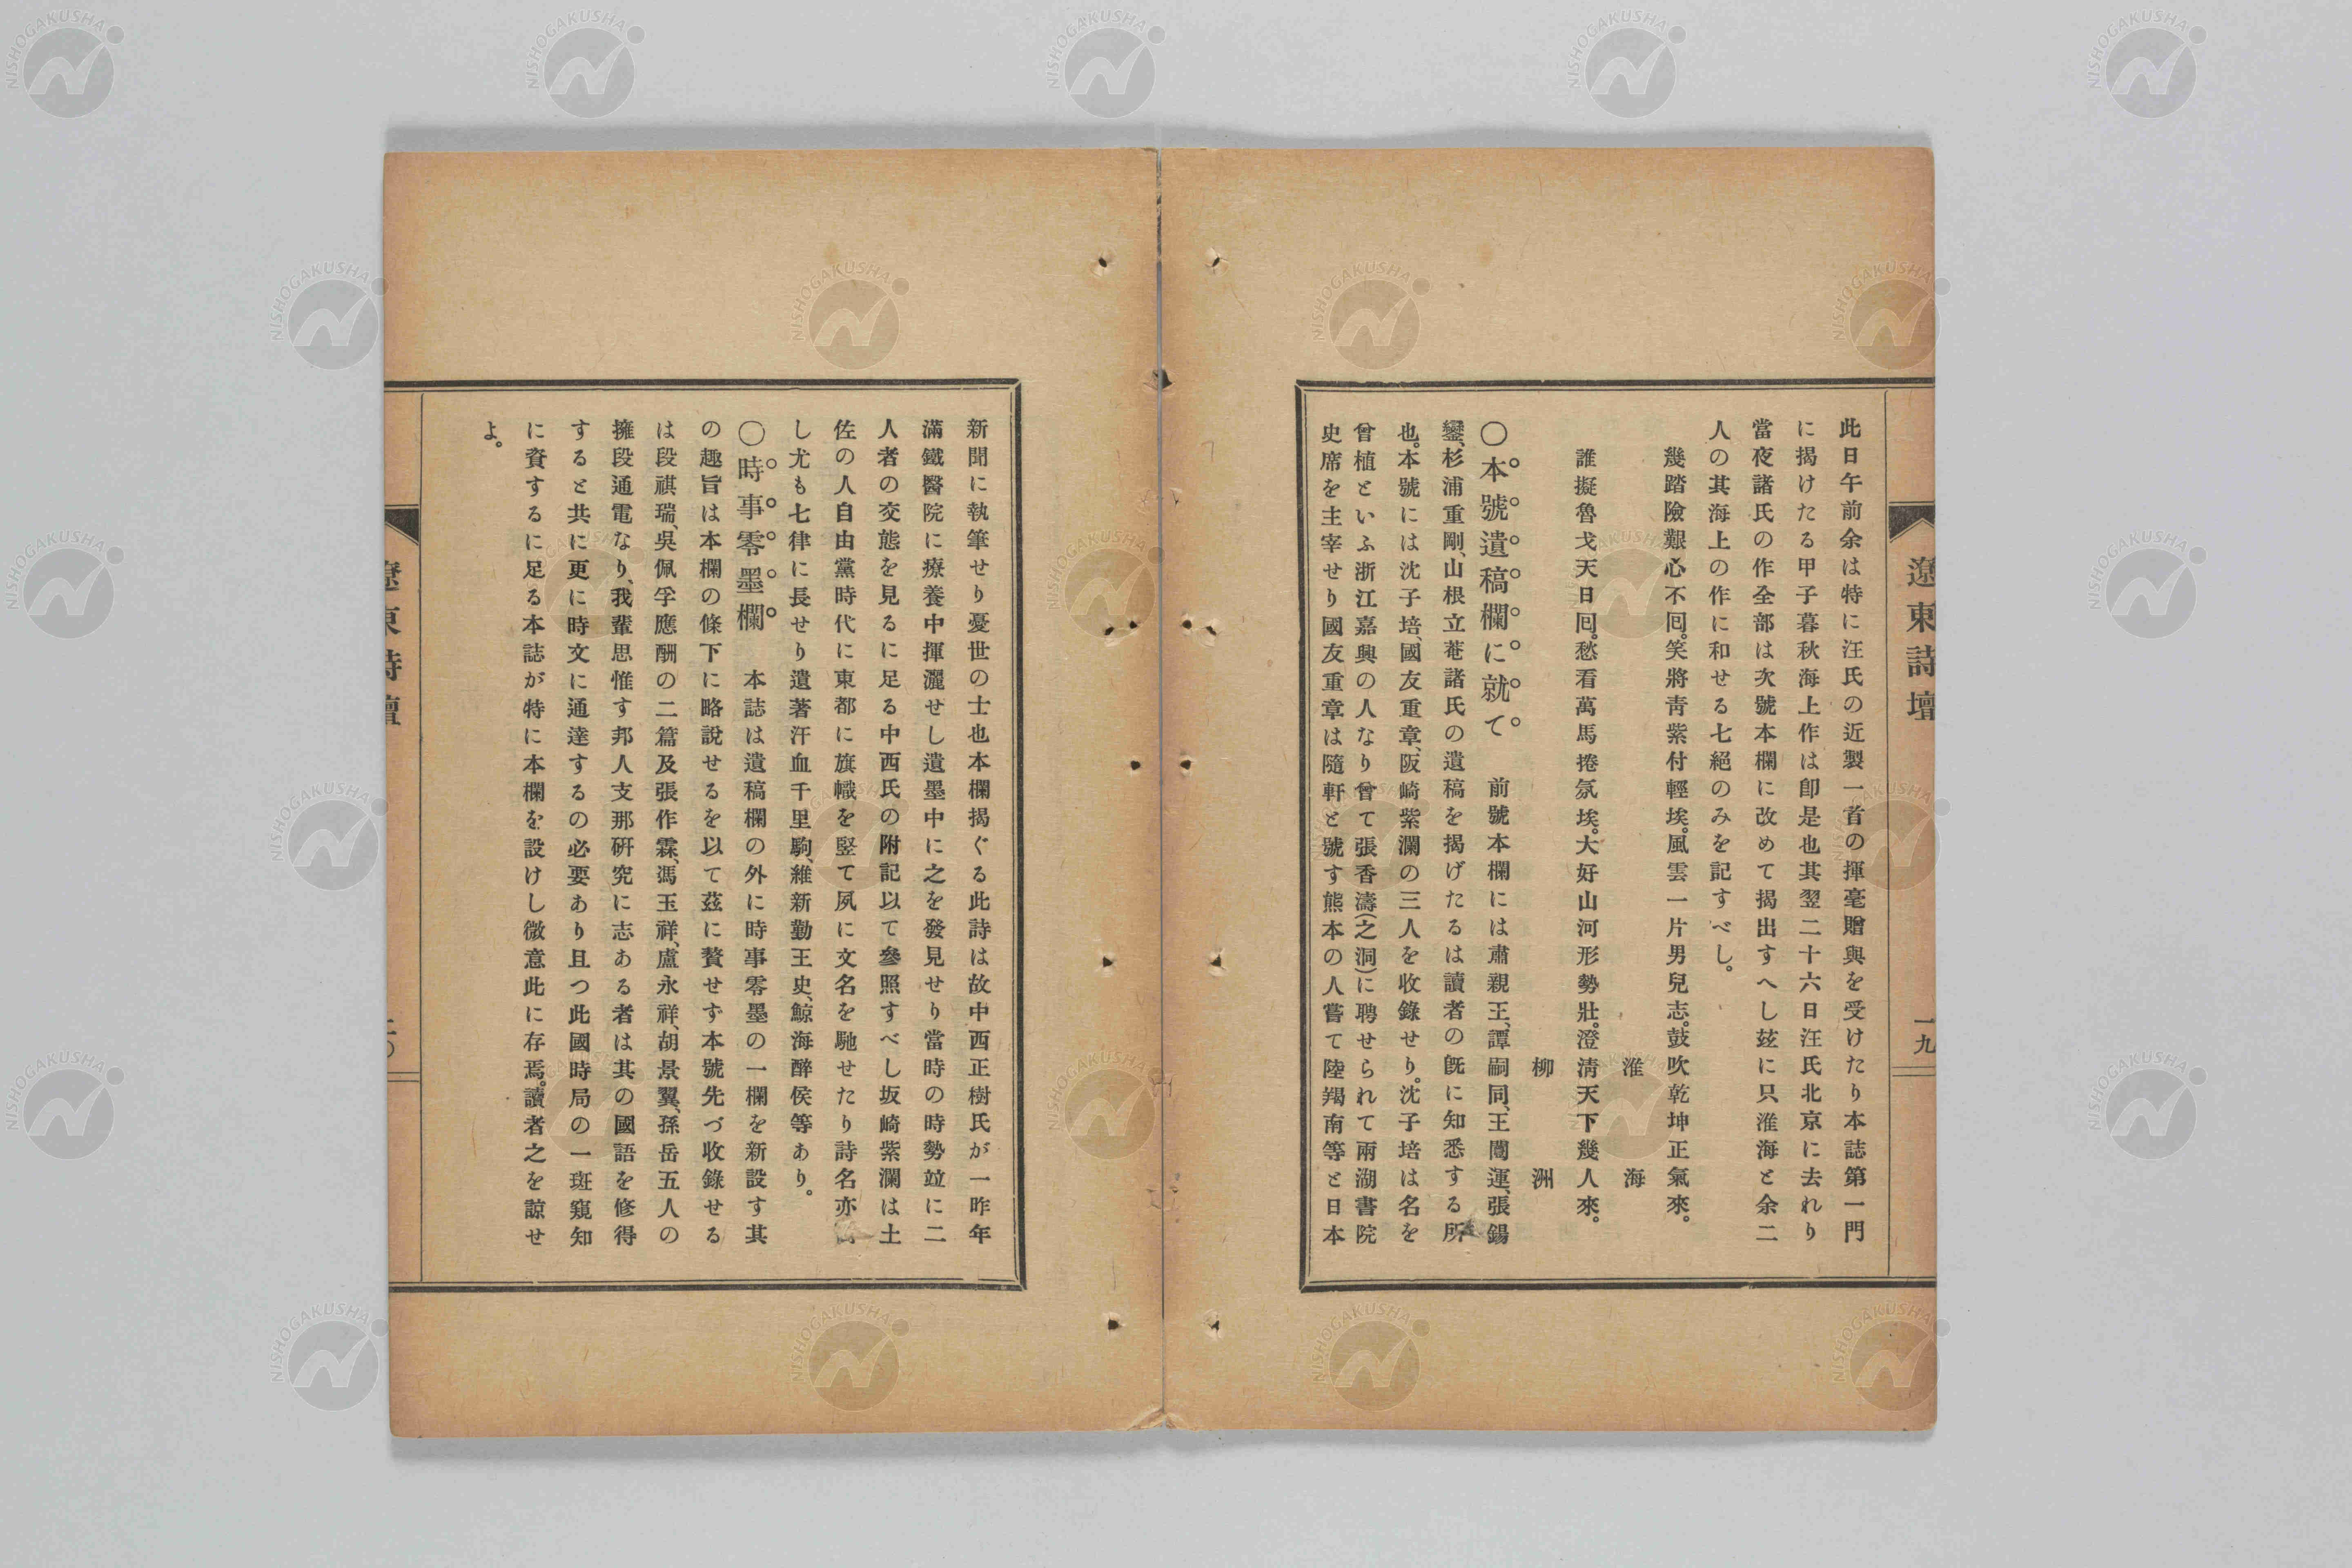 遼東詩壇 一九
此日午前余は特に汪氏の近製一首の揮毫贈與を受けたり本誌第一門
に揭けたる甲子暮秋海上作は卽是也其翌二十六日汪氏北京に去れり
當夜諸氏の作全部は次號本欄に改めて揭出すへし玆に只淮海と余二
人の其海上の作に和せる七絕のみを記すべし。
幾踏險艱心不回。笑將靑紫付輕埃。風雲一片男兒志。鼓吹乾坤正氣來。
淮海
誰擬魯戈天日回。愁看萬馬捲氛埃。大好山河形勢壯。澄淸天下幾人來。
柳洲
〇本號遺稿欄に就て 前號本欄には肅親王、譚嗣同、王闓運、張錫
鑾、杉浦重剛、山根立菴諸氏の遺稿を揭げたるは讀者の旣に知悉する所
也。本號には沈子培、國友重章、阪崎紫瀾の三人を收錄せり。沈子培は名を
曾植といふ浙江嘉興の人なり曾て張香濤(之洞)に聘せられて兩湖書院
史席を主宰せり國友重章は隨軒と號す熊本の人嘗て陸羯南等と日本
新聞に執筆せり憂世の士也本欄揭ぐる此詩は故中西正樹氏が一昨年
滿鐵醫院に療養中揮灑せし遺墨中に之を發見せり當時の時勢竝に二
人者の交態を見るに足る中西氏の附記以て參照すべし坂崎紫瀾は土
佐の人自由黨時代に東都に旗幟を竪て夙に文名を馳せたり詩名亦
し尤も七律に長せり遺著汗血千里駒、維新勤王史、鯨海醉侯等あり。
〇時事零墨欄 本誌は遺稿欄の外に時事零墨の一欄を新設す其
の趣旨は本欄の條下に略說せるを以て玆に贅せず本號先づ收錄せる
は段祺瑞、吳佩孚應酬の二篇及張作霖、馮玉祥、盧永祥、胡景翼、孫岳五人の
擁段通電なり、我輩思惟す邦人支那硏究に志ある者は其の國語を修得
すると共に更に時文に通達するの必要あり且つ此國時局の一斑窺知
に資するに足る本誌が特に本欄を設けし微意此に存焉。讀者之を諒せ
よ。
遼東詩壇 二〇
NISHOGAKUSHA